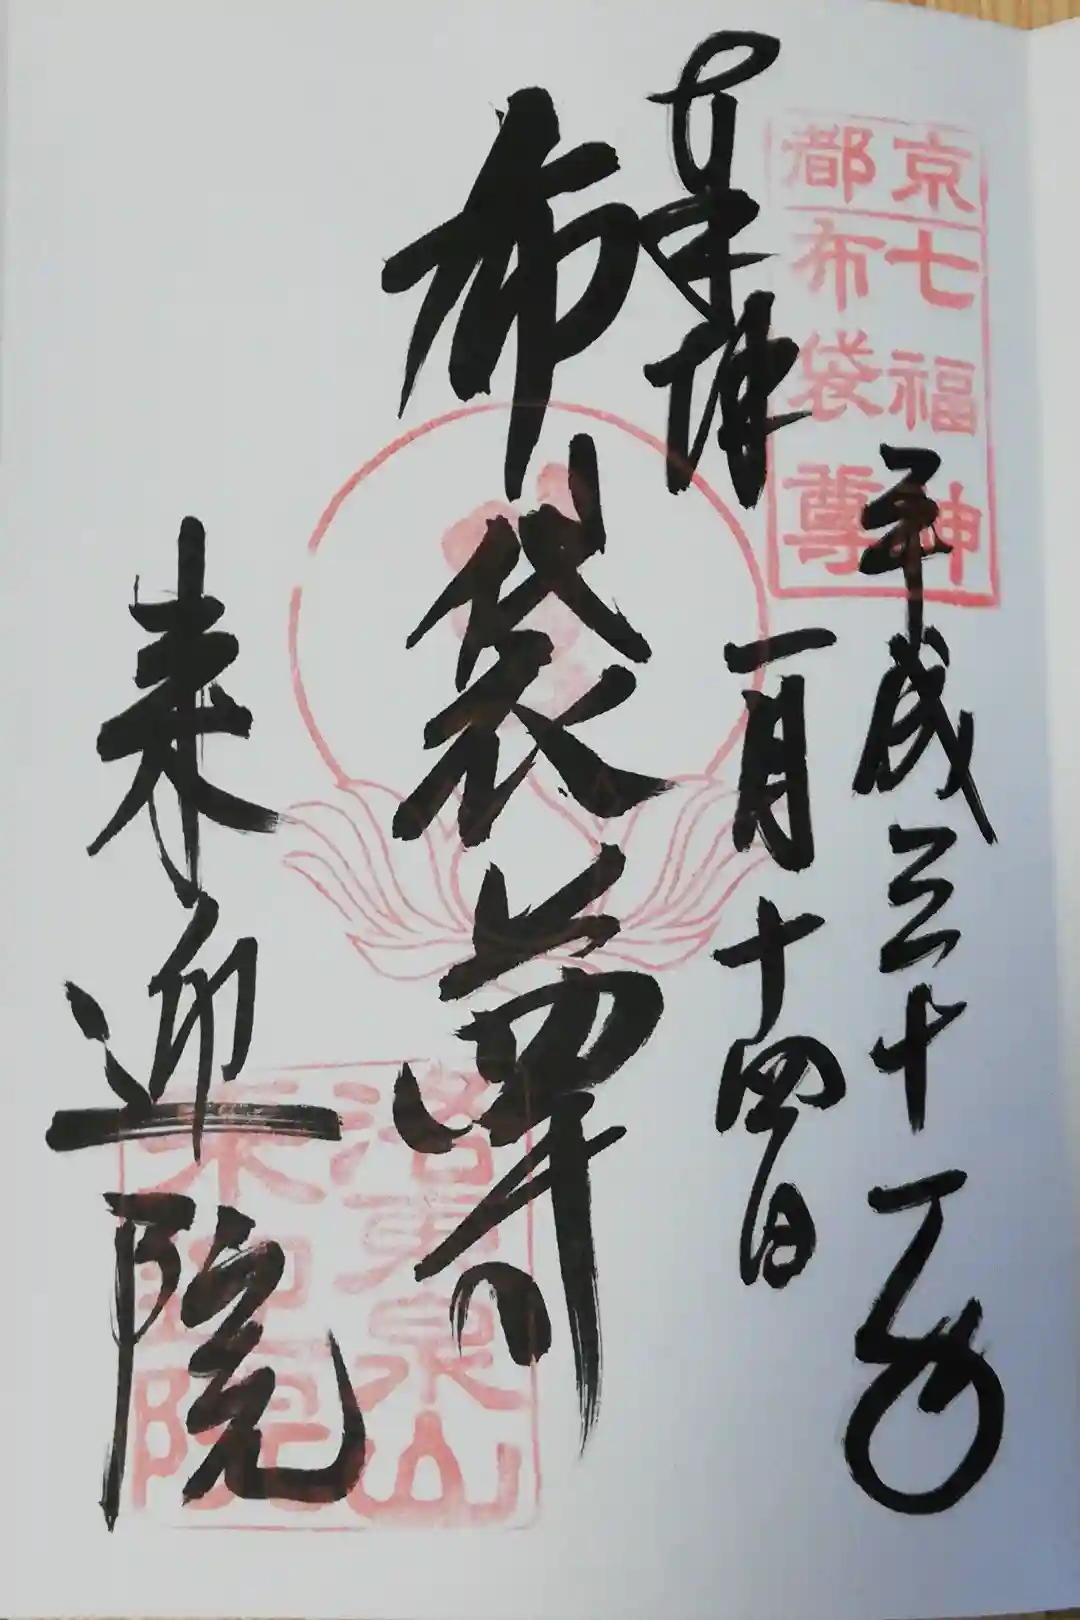 京都
七福神
布袋尊
平成三十一年
一月十四日
奉拝
布袋尊
来迎院
洛東泉山
来迎院